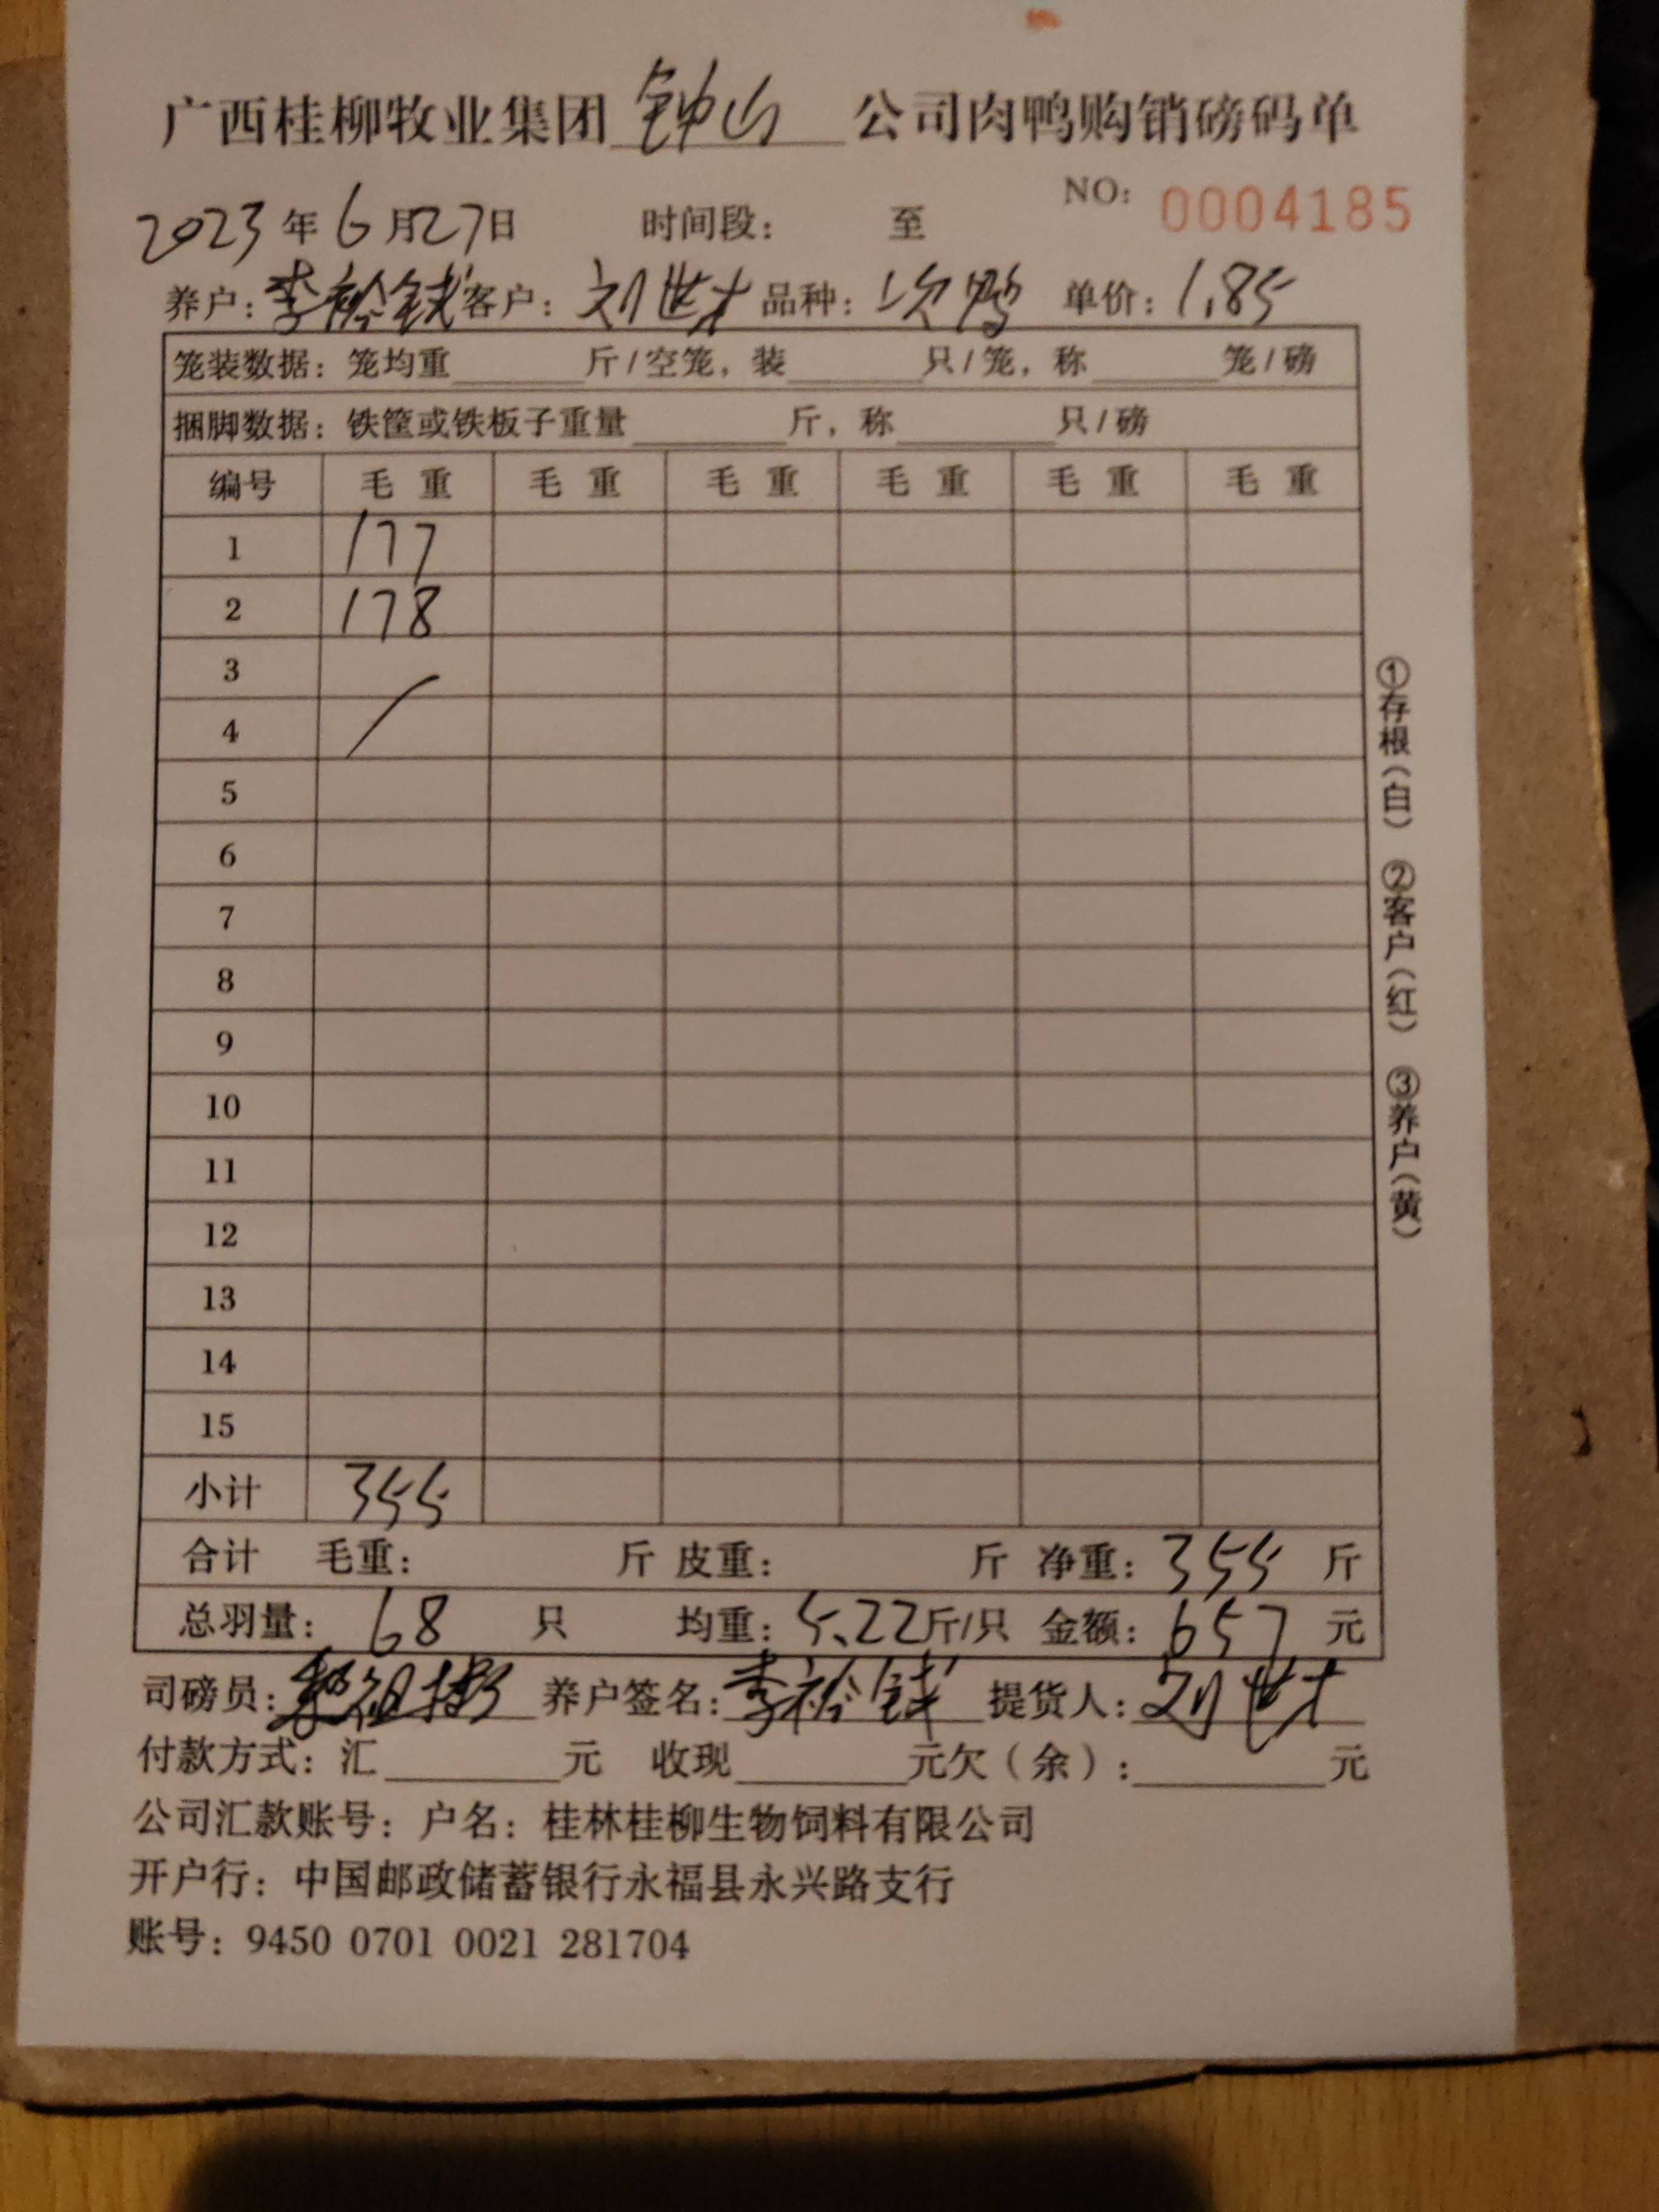 广西桂柳牧业集团钟山公司肉鸭购销磅码单
NO: 0004185
2023年6月27日 时间段: 至
养户:李裕钱 客户:刘世才 品种:次鸭 单价:1.85
笼装数据:笼均重 斤/空笼,装 只/笼,称 笼/磅
捆脚数据:铁筐或铁板子重量 斤,称 只/磅
编号 毛重 毛重 毛重 毛重 毛重 毛重
1 177
2 178
3
4
5
6
7
8
9
10
11
12
13
14
15
小计 355
合计 毛重: 斤 皮重: 斤 净重:355 斤
总羽量:68 只 均重:5.22斤/只 金额:657 元
司磅员: 养户签名:李裕钱 提货人:刘世才
付款方式:汇 元 收现 元欠(余): 元
公司汇款账号:户名:桂林桂柳生物饲料有限公司
开户行:中国邮政储蓄银行永福县永兴路支行
账号:9450 0701 0021 281704
①存根(白) ②客户(红) ③养户(黄)